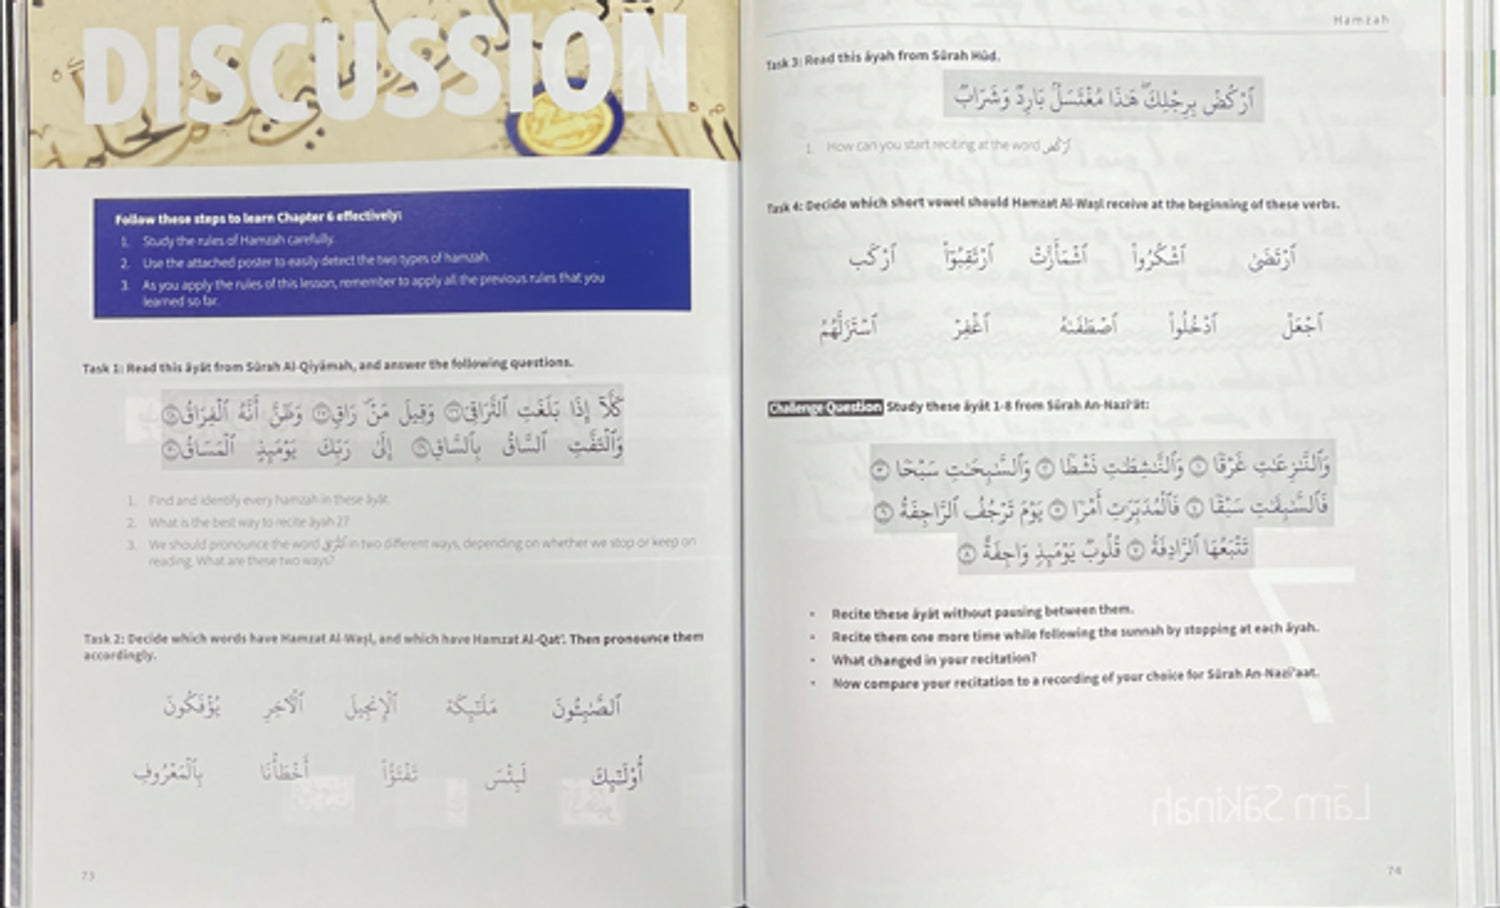 DISCUSSION
Follow these steps to learn Chapter 6 effectively:
1. Study the rules of Hamzah carefully.
2. Use the attached poster to easily detect the two types of hamzah.
3. As you apply the rules of this lesson, remember to apply all the previous rules that you
learned so far.
Task 1: Read this āyāt from Sūrah Al-Qiyāmah, and answer the following questions.
كَلَّآ إِذَا بَلَغَتِ ٱلتَّرَاقِىَ ٢٦ وَقِيلَ مَنْ ۜ رَاقٍ ٢٧ وَظَنَّ أَنَّهُ ٱلْفِرَاقُ ٢٨
وَٱلْتَفَّتِ ٱلسَّاقُ بِٱلسَّاقِ ٢٩ إِلَىٰ رَبِّكَ يَوْمَئِذٍ ٱلْمَسَاقُ ٣٠
1. Find and identify every hamzah in these āyāt.
2. What is the best way to recite āyah 27
3. We should pronounce the word in two different ways, depending on whether we stop or keep on
reading. What are these two ways?
Task 2: Decide which words have Hamzat Al-Waṣl, and which have Hamzat Al-Qat'. Then pronounce them
accordingly.
ٱلصَّٰبِـُٔونَ مَلَٰٓئِكَة ٱلْإِنجِيلَ ٱلْأَخِرِ يُؤْفَكُونَ
أُو۟لَٰٓئِكَ لَبِئْسَ تَفْتَؤُا۟ أَخْطَأْنَا بِٱلْمَعْرُوفِ
73
Hamzah
Task 3: Read this āyah from Sūrah Hūd.
ٱرْكُضْ بِرِجْلِكَ ۖ هَٰذَا مُغْتَسَلٌۢ بَارِدٌ وَشَرَابٌ
1. How can you start reciting at the word ٱرْكُضْ
Task 4: Decide which short vowel should Hamzat Al-Waṣl receive at the beginning of these verbs.
ٱرْتَضَىٰ ٱشْكُرُوا۟ ٱشْمَأَزَّتْ ٱرْتَقِبُوٓا۟ ٱرْكَب
ٱجْعَلْ ٱدْخُلُوا۟ ٱصْطَفَىٰهُ ٱغْفِرْ ٱسْتَزَلَّهُمُ
Challenge Question Study these āyāt 1-8 from Sūrah An-Nazi'āt:
وَٱلنَّٰزِعَٰتِ غَرْقًا ١ وَٱلنَّٰشِطَٰتِ نَشْطًا ٢ وَٱلسَّٰبِحَٰتِ سَبْحًا ٣
فَٱلسَّٰبِقَٰتِ سَبْقًا ٤ فَٱلْمُدَبِّرَٰتِ أَمْرًا ٥ يَوْمَ تَرْجُفُ ٱلرَّاجِفَةُ ٦
تَتْبَعُهَا ٱلرَّادِفَةُ ٧ قُلُوبٌ يَوْمَئِذٍ وَاجِفَةٌ ٨
• Recite these āyāt without pausing between them.
• Recite them one more time while following the sunnah by stopping at each āyah.
• What changed in your recitation?
• Now compare your recitation to a recording of your choice for Sūrah An-Nazi'aat.
Lām Sākinah
74